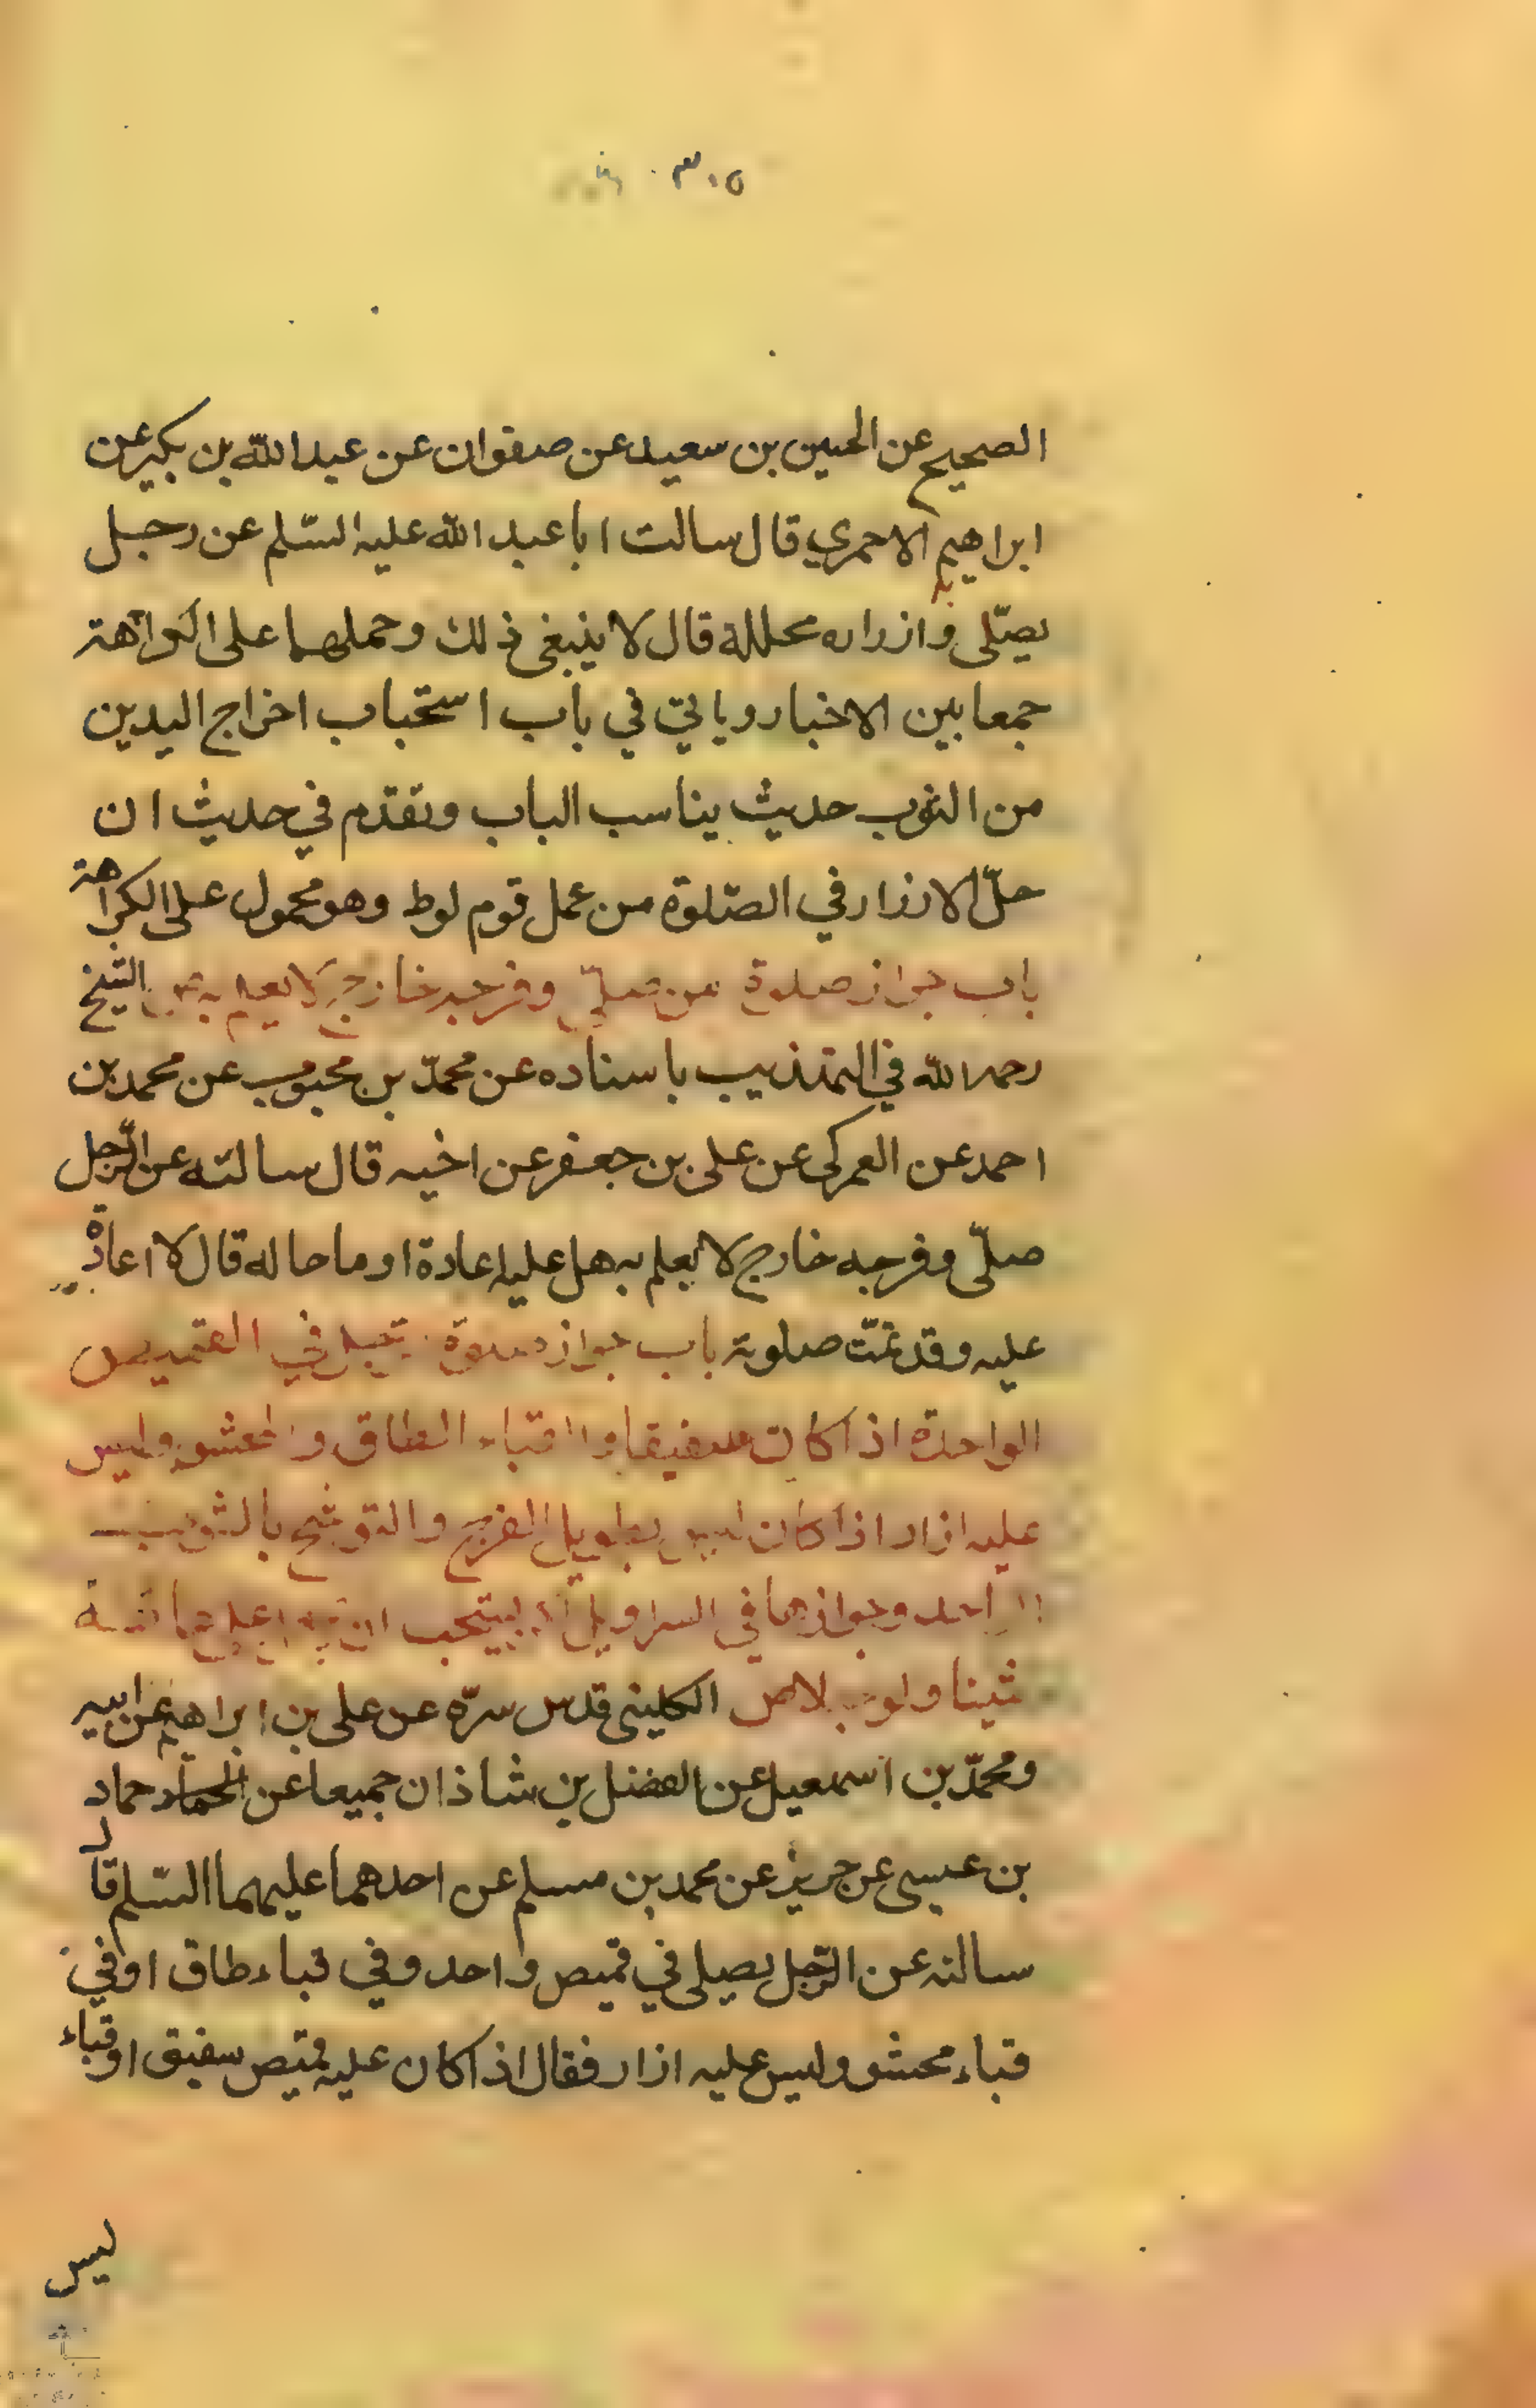 ٣٠٥
الصحيح عن الحسين بن سعيد عن صفوان عن عبد الله بن بكير عن
ابراهيم الاحمري قال سالت ابا عبد الله عليه السّلم عن رجل
يصلّى وازراره محللة قال لا ينبغى ذلك وحملهما على الكراهة
جمعا بين الاخبار وياتي في باب استحباب اخراج اليدين
من الثوب حديث يناسب الباب وتقدّم في حديث ان
حلّ الازرار في الصّلوة من عمل قوم لوط وهو محمول على الكراهة
باب جواز صلوة من صلّى وفرجه خارج لا يعلم به الشيخ
رحمه الله في التهذيب باسناده عن محمّد بن محبوب عن محمد بن
احمد عن العمركى عن على بن جعفر عن اخيه قال سالته عن الرّجل
صلّى وفرجه خارج لا يعلم به هل عليه اعادة او ما حاله قال لا اعادة
عليه وقد تمّت صلوته باب جواز صلوة في القميص
الواحدة اذا كان صفيقا والقباء الطاق والمحشو وليس
عليه ازار اذا كان ليس بطويل الفرج والتوشح بالثوب
الواحد وجوازها في السراويل
شيئا ولو الكلينى قدس سرّه عن على بن ابراهيم عن ابيه
ومحمّد بن اسمعيل عن الفضل بن شاذان جميعا عن الحماد حماد
بن عيسى عن حريز عن محمد بن مسلم عن احدهما عليهما السّلم قال
سالته عن الرّجل يصلى في قميص واحد وفي قباء طاق او في
قباء محشو وليس عليه ازار فقال اذا كان عليه قميص سفيق او قباء
ليس